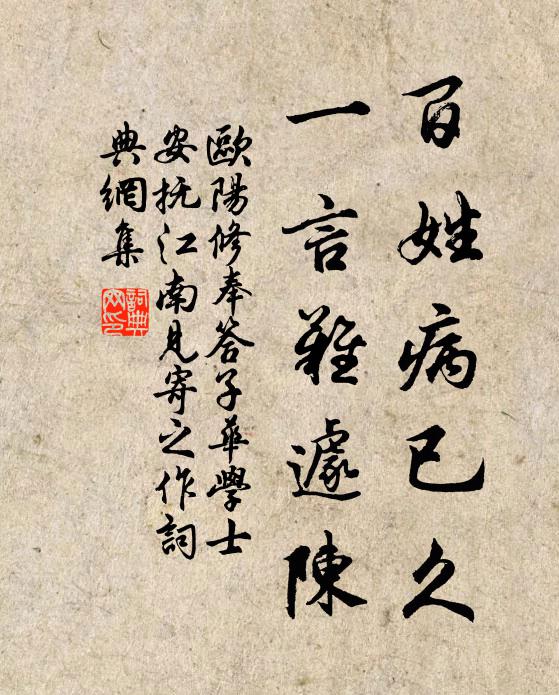 百姓病已久
一言難遽陳
歐陽修奉答子華學士
安抚江南見寄之作詞
典網集
詞典
网印